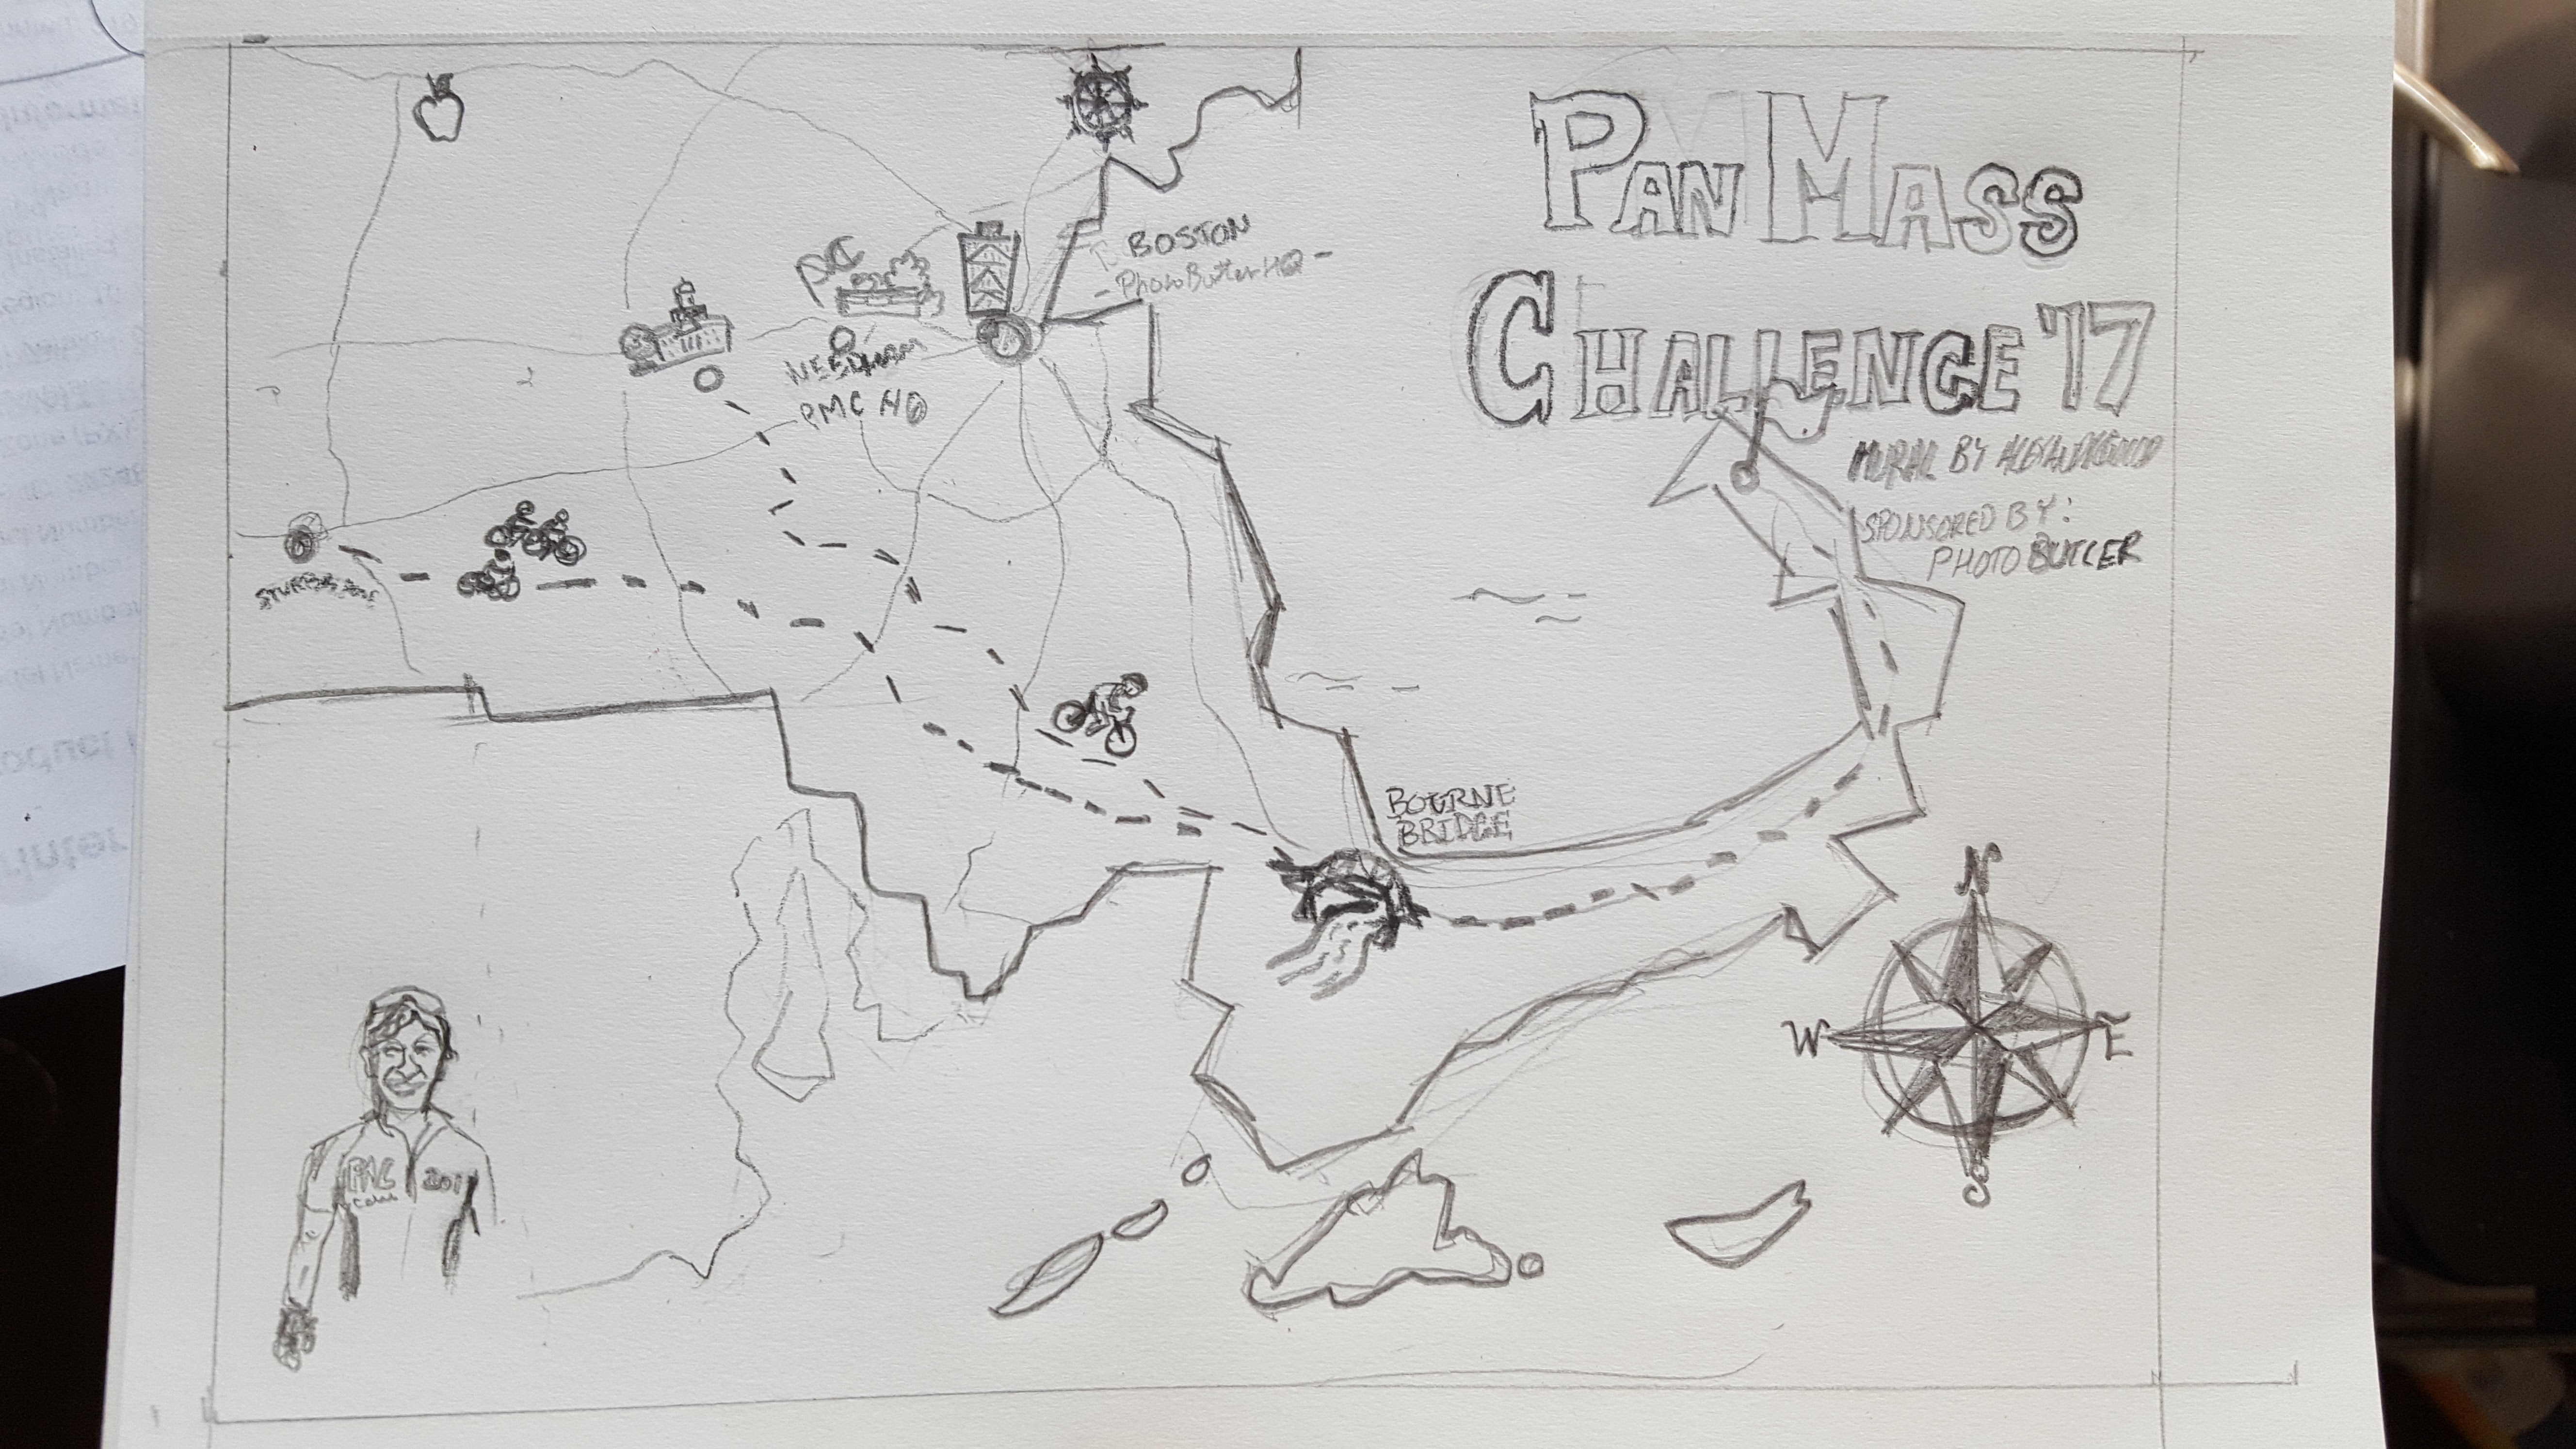 PAN MASS
CHALLENGE '17
MURAL BY
SPONSORED BY:
PHOTO BUTLER
BOSTON
- PhotoButler HQ -
NEEDHAM
PMC HQ
STURBRIDGE
BOURNE
BRIDGE
N
W
E
PMC
201